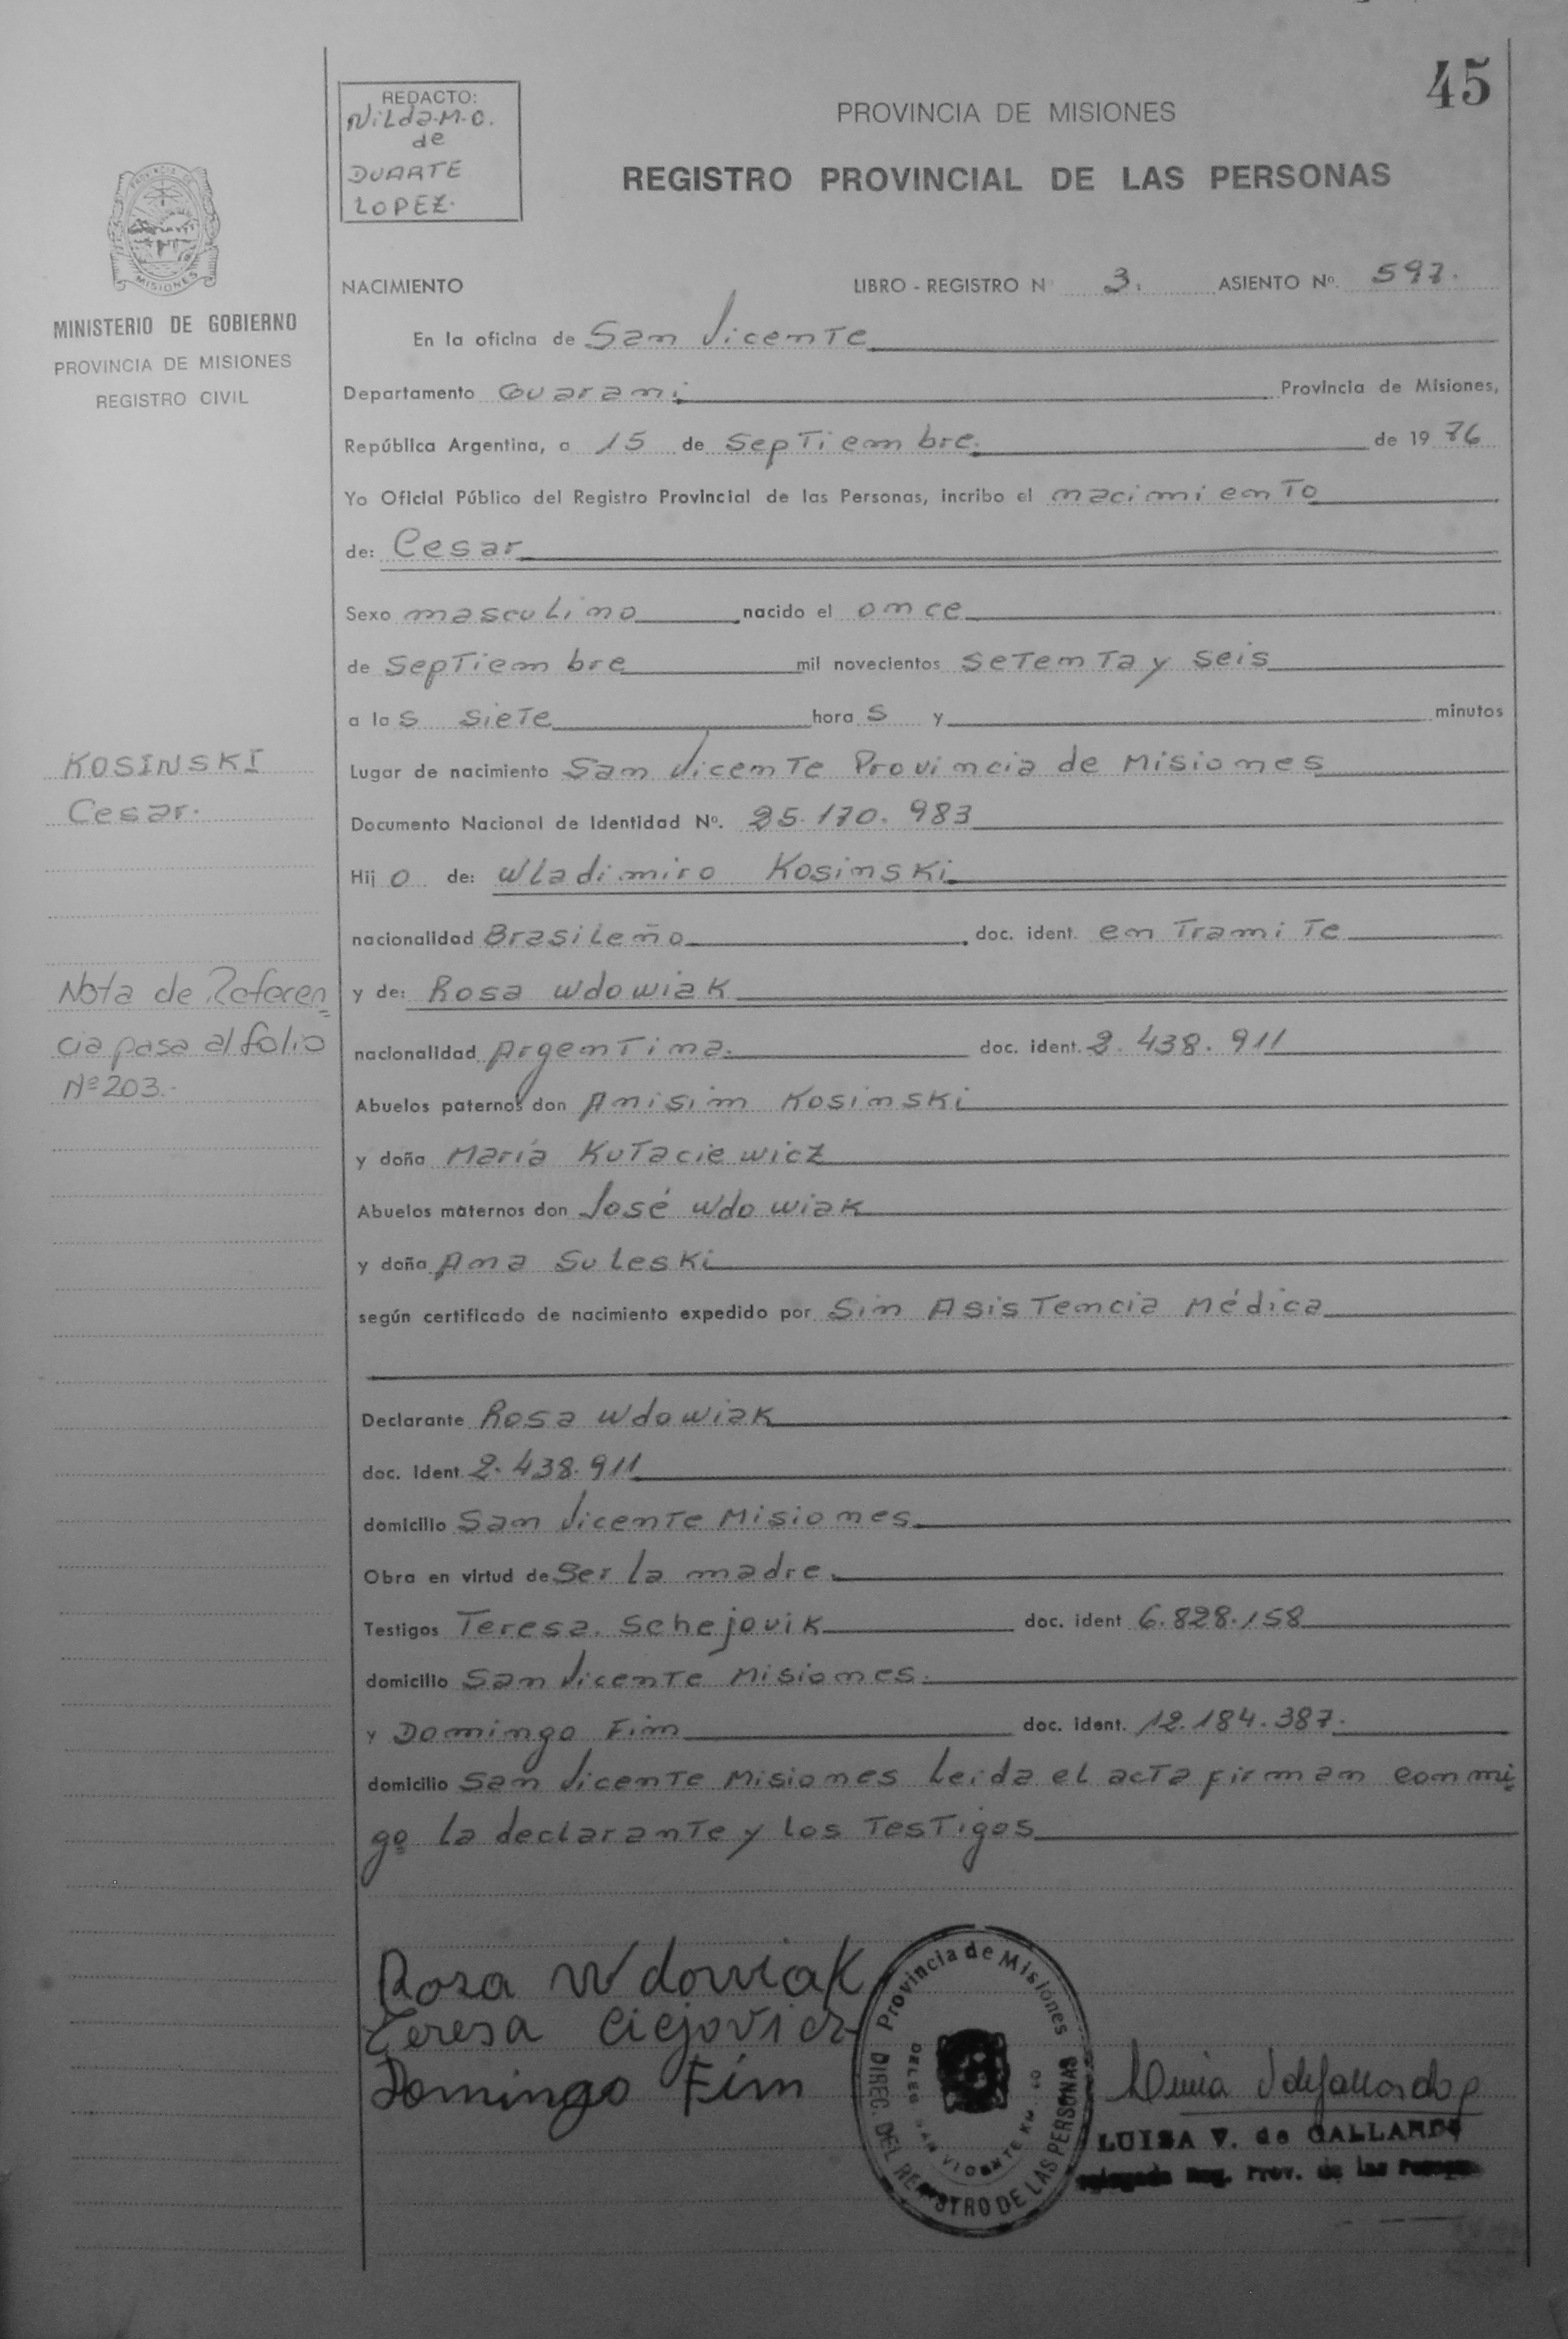 45
REDACTO:
Nilda.M.C.
de
DUARTE
LOPEZ.
PROVINCIA DE MISIONES
REGISTRO PROVINCIAL DE LAS PERSONAS
PROVINCIA DE
MISIONES
MINISTERIO DE GOBIERNO
PROVINCIA DE MISIONES
REGISTRO CIVIL
NACIMIENTO LIBRO - REGISTRO Nº 3. ASIENTO Nº. 597.
En la oficina de San Vicente
Departamento Guarani Provincia de Misiones,
República Argentina, a 15 de Septiembre. de 1976
Yo Oficial Público del Registro Provincial de las Personas, incribo el nacimiento
de: Cesar
Sexo masculino nacido el once
de Septiembre mil novecientos setenta y seis
a las siete horas y minutos
KOSINSKI
Cesar.
Lugar de nacimiento San Vicente Provincia de Misiones
Documento Nacional de Identidad Nº. 25.170.983
Hijo de: Wladimiro Kosinski
nacionalidad Brasileño doc. ident. en Tramite
Nota de Referen
cia pasa al folio
Nº 203.-
y de: Rosa Wdowiak
nacionalidad Argentina. doc. ident. 2.438.911
Abuelos paternos don Anisim Kosinski
y doña María Kutaciewicz
Abuelos maternos don José Wdowiak
y doña Ana Suleski
según certificado de nacimiento expedido por Sin Asistencia Médica
Declarante Rosa Wdowiak
doc. ident 2.438.911
domicilio San Vicente Misiones
Obra en virtud de Ser la madre.
Testigos Teresa. Schejovik doc. ident 6.828.158
domicilio San Vicente Misiones.
y Domingo Fim doc. ident. 12.184.387.
domicilio San Vicente Misiones Leida el acta firman conmi
go la declarante y los Testigos
Rosa Wdowiak
Teresa Ciejovicz
Domingo Fim
Provincia de Misiones
DIREC. DEL REGISTRO DE LAS PERSONAS
DELEG. SAN VICENTE KM 40
LUISA V. de GALLARDO
Delegada Reg. Prov. de las Personas